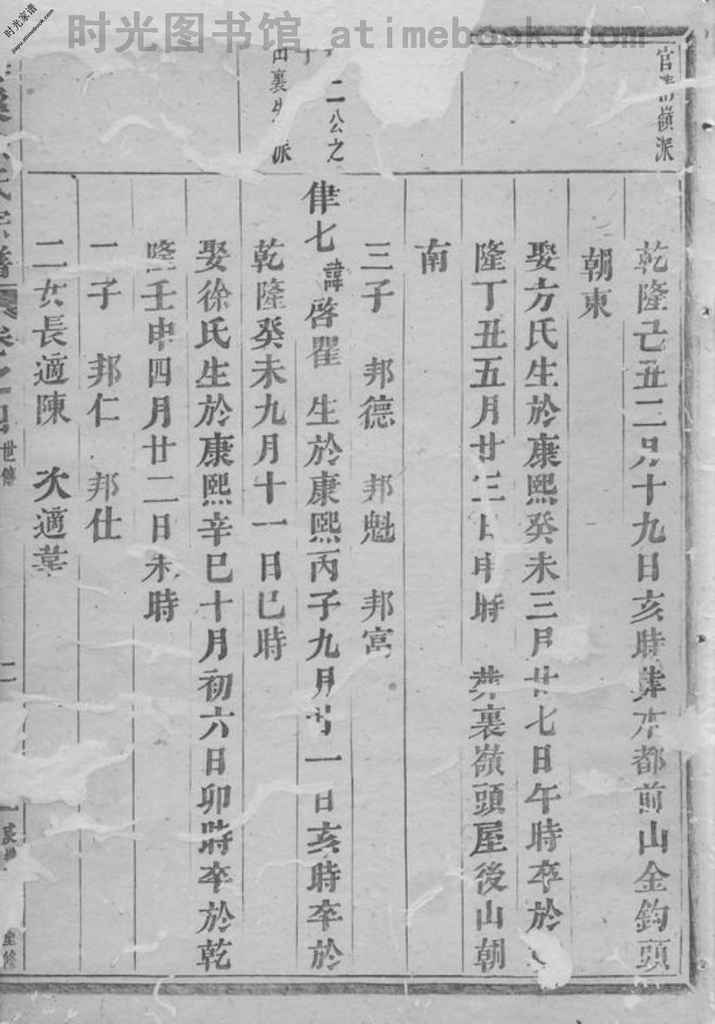 时光图书馆 atimebook.com
时光家谱
www.atimebook.com
官 嶺派
乾隆己丑二月十九日亥時葬本都前山金鈎頭
朝東
娶方氏生於康熙癸未三月廿七日午時卒於
隆丁丑五月廿三日申時 葬裏嶺頭屋後山朝
南
三子 邦德 邦魁 邦富
二公之
裏 派
律七 諱啓瞿 生於康熙丙子九月廿一日亥時卒於
乾隆癸未九月十一日巳時
娶徐氏生於康熙辛巳十月初六日卯時卒於乾
隆壬申四月廿二日未時
二子 邦仁 邦仕
二女長適陳 次適葉
氏宗譜 卷之四 世傳 二